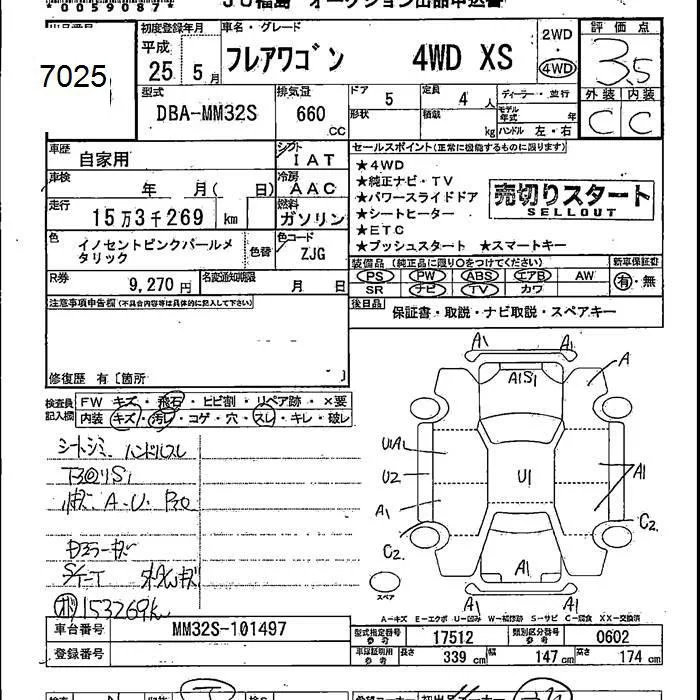 *00590874*
JU福島 オークション出品申込書
出品番号 7025
初度登録年月 平成 25年 5月
車名・グレード フレアワゴン 4WD XS
2WD 4WD
評価点 3.5
外装 内装
C C
型式 DBA-MM32S
排気量 660 CC
ドア 5 定員 4人
形状 積載 kg
ディーラー・並行
モデル年式 年
ハンドル 左・右
車歴 自家用
シフト IAT
車検 年 月( 日)
冷房 AAC
走行 15万3千269 km
燃料 ガソリン
色 イノセントピンクパールメタリック
色替
色コード ZJG
R券 9,270円
名変通知期限 月 日
セールスポイント(正常に機能するものに限ります)
★4WD
★純正ナビ・TV
★パワースライドドア
★シートヒーター
★ETC
★プッシュスタート ★スマートキー
売切りスタート
SELLOUT
装備品(純正品に限り○をつけてください)
新車保証書
PS PW ABS エアB AW
SR ナビ TV カワ
有・無
後日品 保証書・取説・ナビ取説・スペアキー
注意事項申告欄(不具合内容等は具体的に記入して下さい)
修復歴 有〔箇所 〕
検査員記入欄
FW キズ・飛石・ヒビ割・リペア跡・×要
内装 キズ・汚レ・コゲ・穴・スレ・キレ・破レ
シートシミ ハンドルスレ
A・U
153269k
A1 A1S1 A1 A
U1A1 U2 U1 A1
A1 C2 C2
A1 A1 A1
スペア
A-キズ E-エクボ U-凹み W-補修跡 S-サビ C-腐食 XX-交換済
車台番号 MM32S-101497
登録番号
型式指定番号 参考 17512
類別区分番号 参考 0602
車保証明用 参考 長さ 339cm 幅 147cm 高さ 174cm